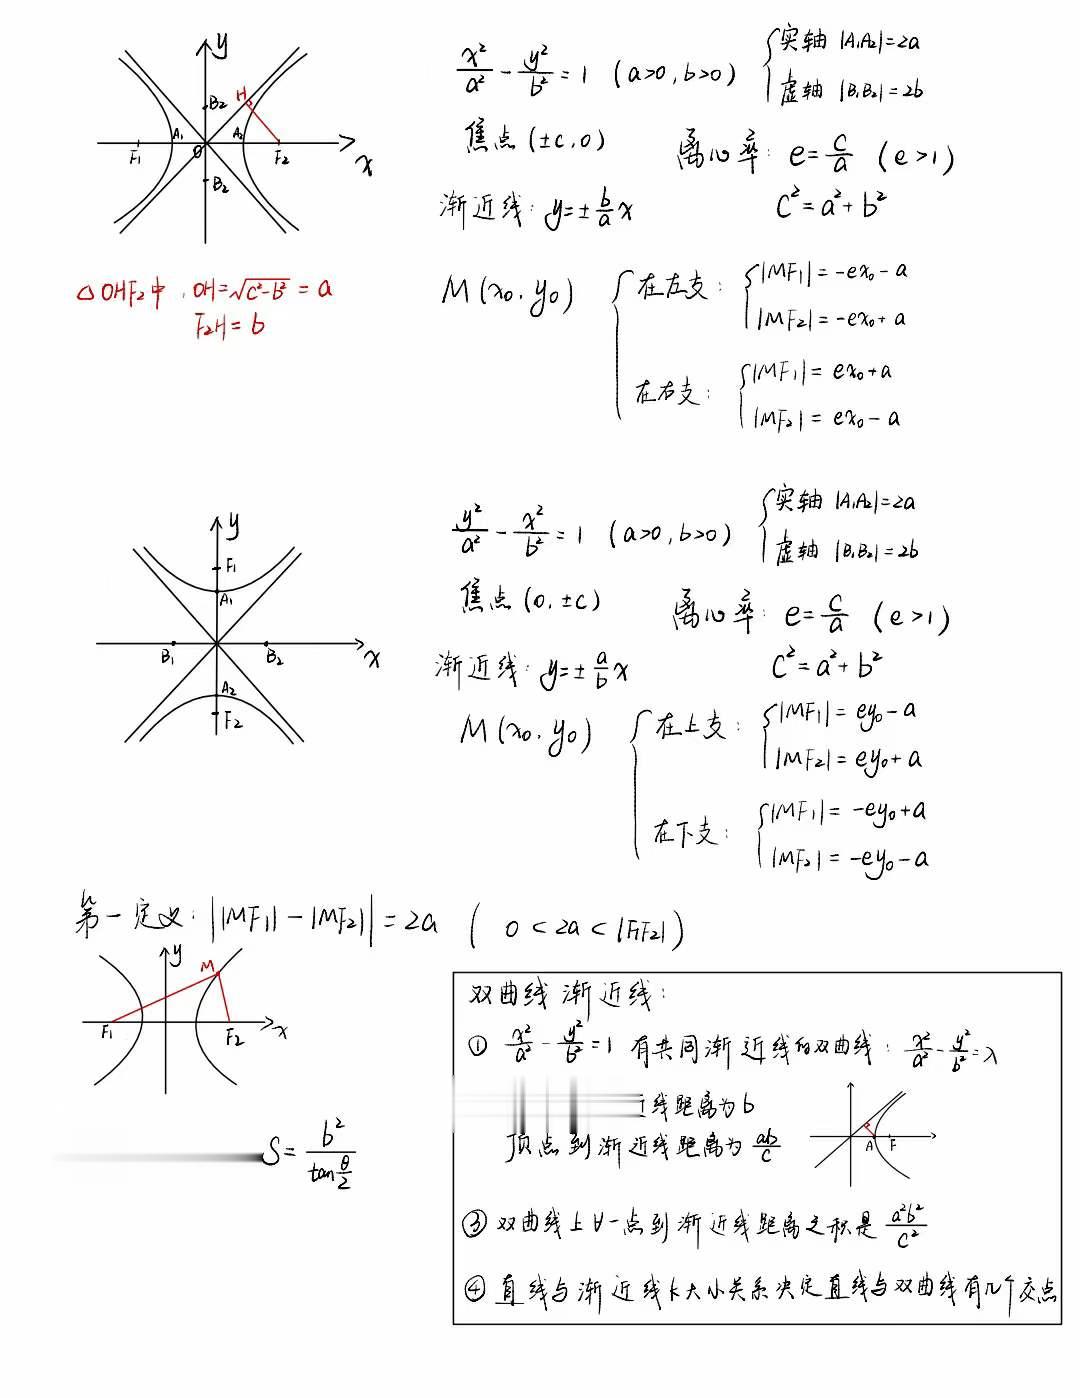 y
B₂
H
A₁
A₂
F₁
O
F₂
x
B₂
x²/a² - y²/b² = 1 (a>0, b>0) { 实轴 |A₁A₂|=2a
虚轴 |B₁B₂|=2b
焦点 (±c, 0) 离心率: e=c/a (e>1)
渐近线: y=±b/a x c²=a²+b²
△OHF₂中, OH=√(c²-b²) = a
F₂H = b
M(x₀, y₀) { 在左支: { |MF₁| = -ex₀ - a
|MF₂| = -ex₀ + a
在右支: { |MF₁| = ex₀ + a
|MF₂| = ex₀ - a
y
F₁
A₁
B₁
B₂
x
A₂
F₂
y²/a² - x²/b² = 1 (a>0, b>0) { 实轴 |A₁A₂|=2a
虚轴 |B₁B₂|=2b
焦点 (0, ±c) 离心率: e=c/a (e>1)
渐近线: y=±a/b x c²=a²+b²
M(x₀, y₀) { 在上支: { |MF₁| = ey₀ - a
|MF₂| = ey₀ + a
在下支: { |MF₁| = -ey₀ + a
|MF₂| = -ey₀ - a
第一定义: ||MF₁| - |MF₂|| = 2a ( 0 < 2a < |F₁F₂| )
y
M
F₁
F₂
x
S = b²/tan θ/2
双曲线渐近线:
① x²/a² - y²/b² = 1 有共同渐近线的双曲线: x²/a² - y²/b² = λ
线距离为b
顶点到渐近线距离为 ab/c
A
F
③ 双曲线上∀一点到渐近线距离之积是 a²b²/c²
④ 直线与渐近线k大小关系决定直线与双曲线有几个交点